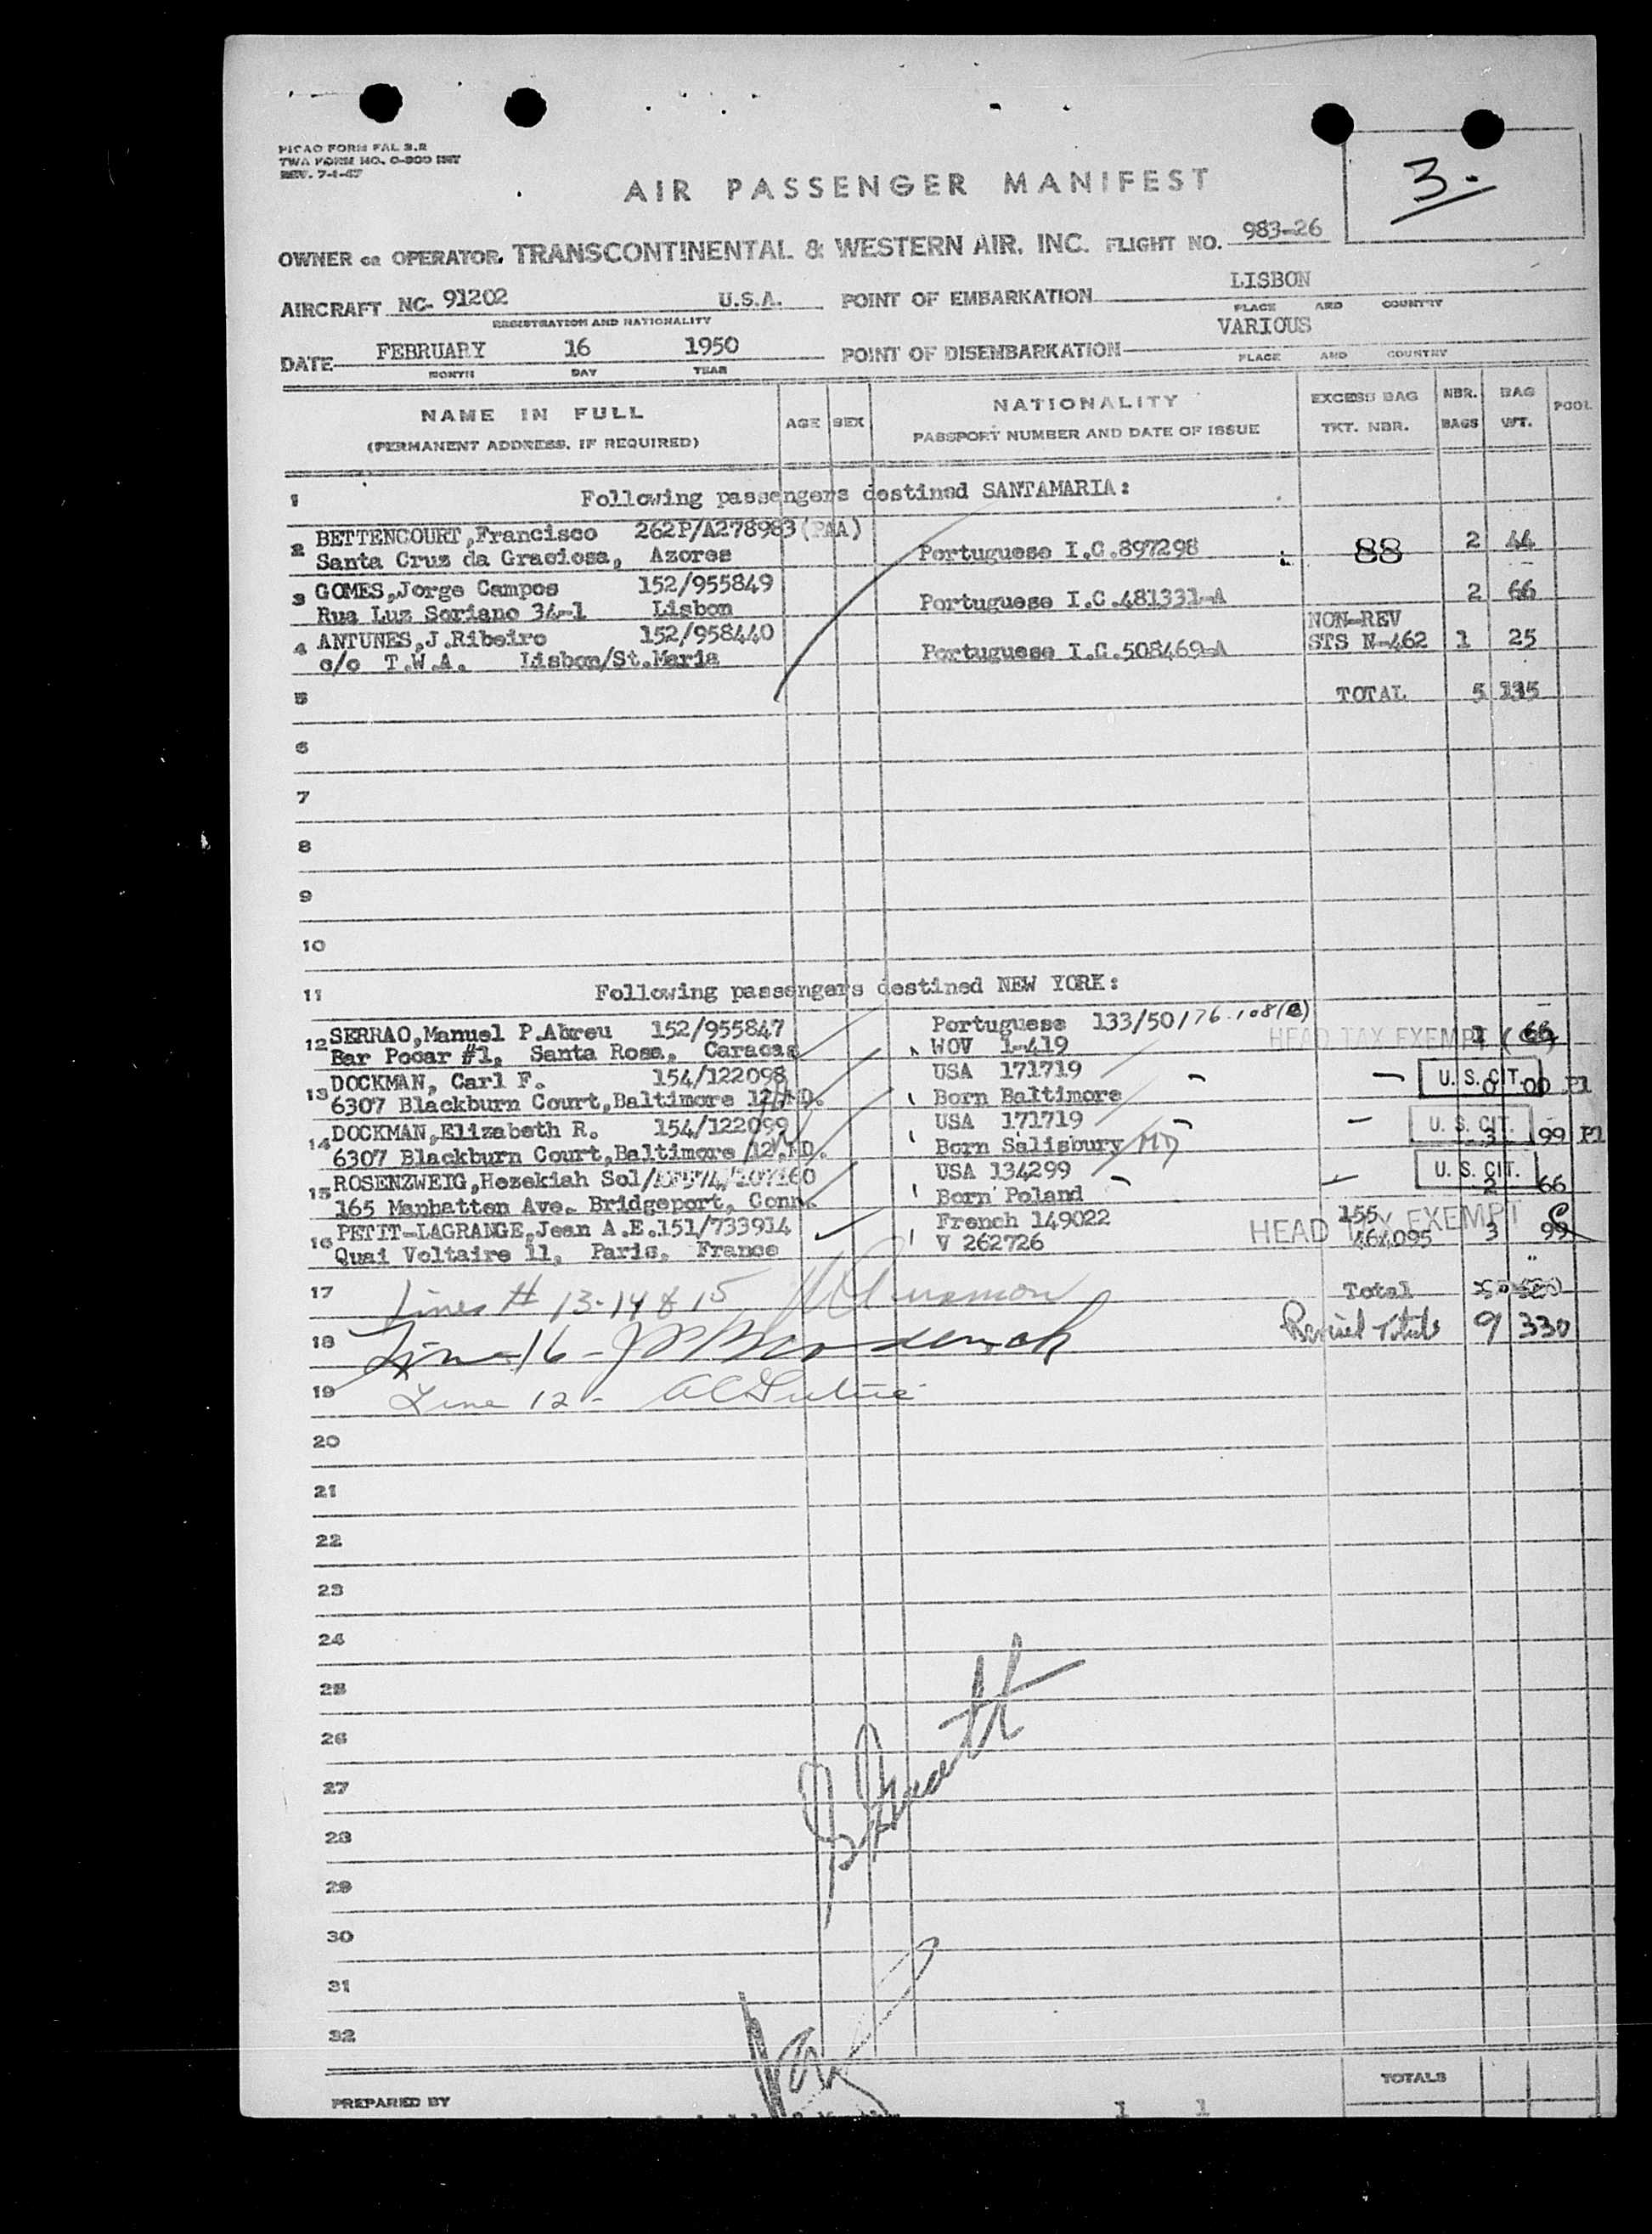 PICAO FORM FAL 3.2
TWA FORM NO. O-800 INT
REV. 7-1-47
3.
AIR PASSENGER MANIFEST
OWNER or OPERATOR. TRANSCONTINENTAL & WESTERN AIR, INC. FLIGHT NO. 983-26
AIRCRAFT NC- 91202 U.S.A. POINT OF EMBARKATION LISBON
REGISTRATION AND NATIONALITY PLACE AND COUNTRY
DATE FEBRUARY 16 1950 POINT OF DISEMBARKATION VARIOUS
MONTH DAY YEAR PLACE AND COUNTRY
NAME IN FULL AGE SEX NATIONALITY EXCESS BAG NBR. BAG POOL
(PERMANENT ADDRESS, IF REQUIRED) PASSPORT NUMBER AND DATE OF ISSUE TKT. NBR. BAGS WT.
1 Following passengers destined SANTAMARIA:
2 BETTENCOURT,Francisco 262P/A278983(PAA)
Santa Cruz da Graciosa, Azores Portuguese I.C.897298 88 2 44
3 GOMES,Jorge Campos 152/955849
Rua Luz Soriano 34-1 Lisbon Portuguese I.C.481331-A 2 66
4 ANTUNES,J.Ribeiro 152/958440 NON-REV
c/o T.W.A. Lisbon/St.Maria Portuguese I.C.508469-A STS N-462 1 25
5 TOTAL 5 135
6
7
8
9
10
11 Following passengers destined NEW YORK:
12 SERRAO,Manuel P.Abreu 152/955847 Portuguese 133/50/76.108(a)
Bar Pocar #1, Santa Rosa, Caracas WOV 1-419 HEAD TAX EXEMPT 1 66
13 DOCKMAN, Carl F. 154/122098 USA 171719 U. S. CIT.
6307 Blackburn Court,Baltimore 12,MD. Born Baltimore 0 00 Pl
14 DOCKMAN,Elizabeth R. 154/122099 USA 171719 U. S. CIT.
6307 Blackburn Court,Baltimore 12,MD. Born Salisbury MD 3 99 Pl
15 ROSENZWEIG,Hezekiah Sol USA 134299 U. S. CIT.
165 Manhatten Ave. Bridgeport, Conn. Born Poland 2 66
16 PETIT-LAGRANGE,Jean A.E.151/733914 French 149022 155 HEAD TAX EXEMPT
Quai Voltaire 11, Paris, France V 262726 464095 3 99
17 Lines # 13-14 & 15 Total
18 Line 16 - Revised Totals 9 330
19 Line 12 -
20
21
22
23
24
25
26
27
28
29
30
31
32
TOTALS
PREPARED BY
1 1